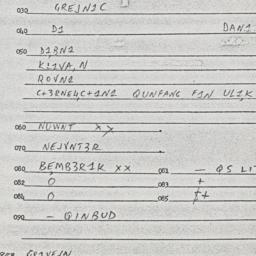 030 GREJN1C
040 D1 DAN1
050 D1BN1
K11VA, N
ROVN1
C+3RNE4C+1N1 QUNFANG F1N UL1K
060 NUWNT xx
070 NEJVNT3R
080 BEMB3R1K xx 081 – QS LIT
082 0 083 +
084 0 085 ++
090 – QINBUD
GR1VEJN